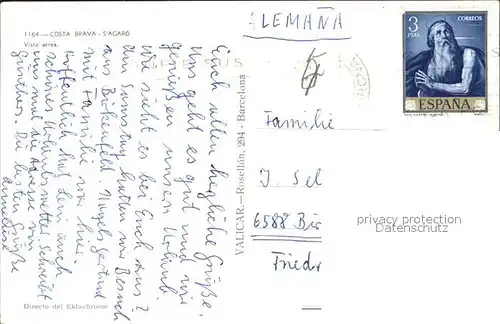 1164 — COSTA BRAVA - S'AGARÓ
Vista aérea.
Euch allen herzliche Grüße.
Uns geht es gut und wir
genießen unsern Urlaub.
Wie sieht es bei Euch aus?
Am Samstag hatten wir Besuch
aus Birkenfeld.
mit Familie war hier.
Hoffentlich habt Ihr auch
schönes Urlaubswetter. Schreibt
uns mal die Adresse von
Günther. Die besten Grüße
Anneliese
Directo del Ektachrome
VALICAR.—Rosellón, 294 - Barcelona
ALEMAÑA
3
PTAS
CORREOS
ESPAÑA
Familie
J. Sel
6588 Bir
Friedr
privacy protection
Datenschutz